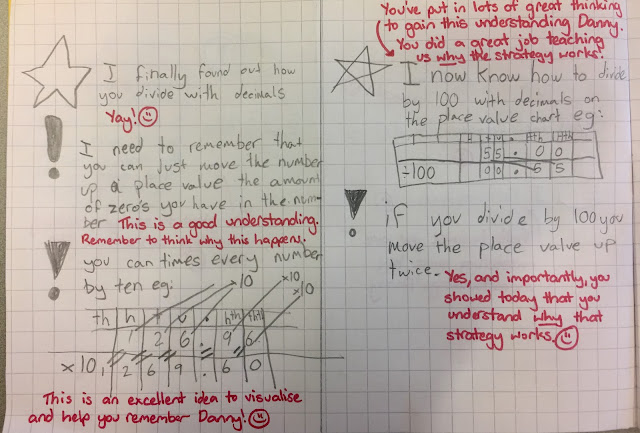 I finally found out how
you divide with decimals
Yay!
I need to remember that
you can just move the number
up a place value the amount
of zero's you have in the num-
ber This is a good understanding.
Remember to think why this happens.
you can times every number
by ten eg: x10 x10 x10
th h t u . hth thth
1 2 6 . 9 6
x10, 1 2 6 9 . 6 0
This is an excellent idea to visualise
and help you remember Danny!
You've put in lots of great thinking
to gain this understanding Danny.
You did a great job teaching
us why the strategy works.
I now know how to divide
by 100 with decimals on
the place value chart eg:
H t u . th hth
55 . 0 0
÷100 00 . 5 5
if you divide by 100 you
move the place value up
twice.
Yes, and importantly, you
showed today that you
understand why that
strategy works.